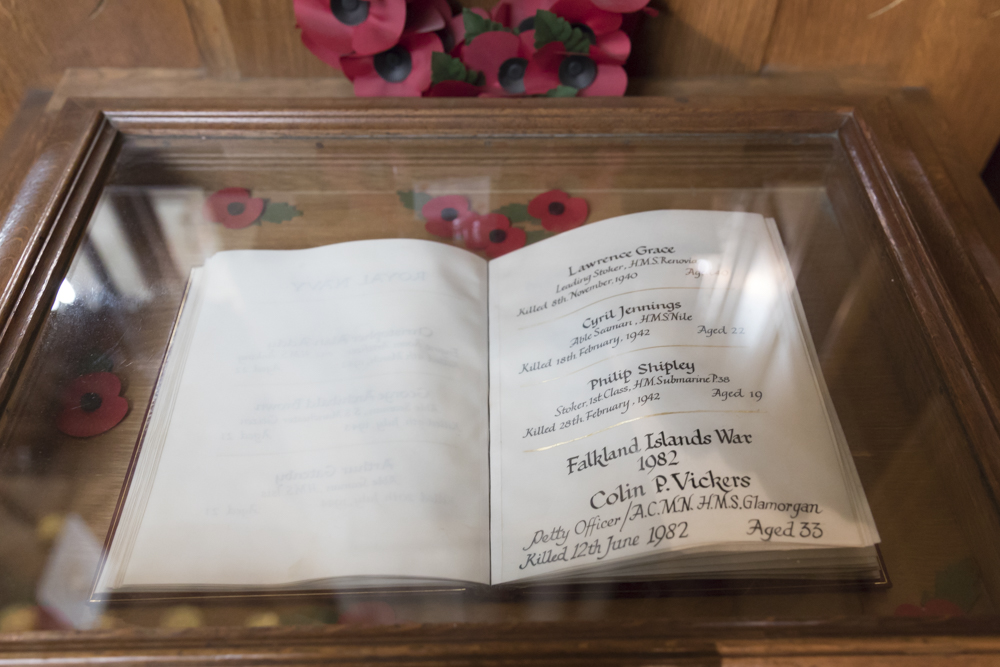 Lawrence Grace
Leading Stoker, H.M.S. Renown
Killed 8th November, 1940
Cyril Jennings
Able Seaman, H.M.S Nile
Killed 18th February, 1942 Aged 22
Philip Shipley
Stoker, 1st Class, H.M. Submarine P.38
Killed 28th February, 1942 Aged 19
Falkland Islands War
1982
Colin P. Vickers
Petty Officer/A.C.M.N. H.M.S. Glamorgan
Killed 12th June 1982 Aged 33